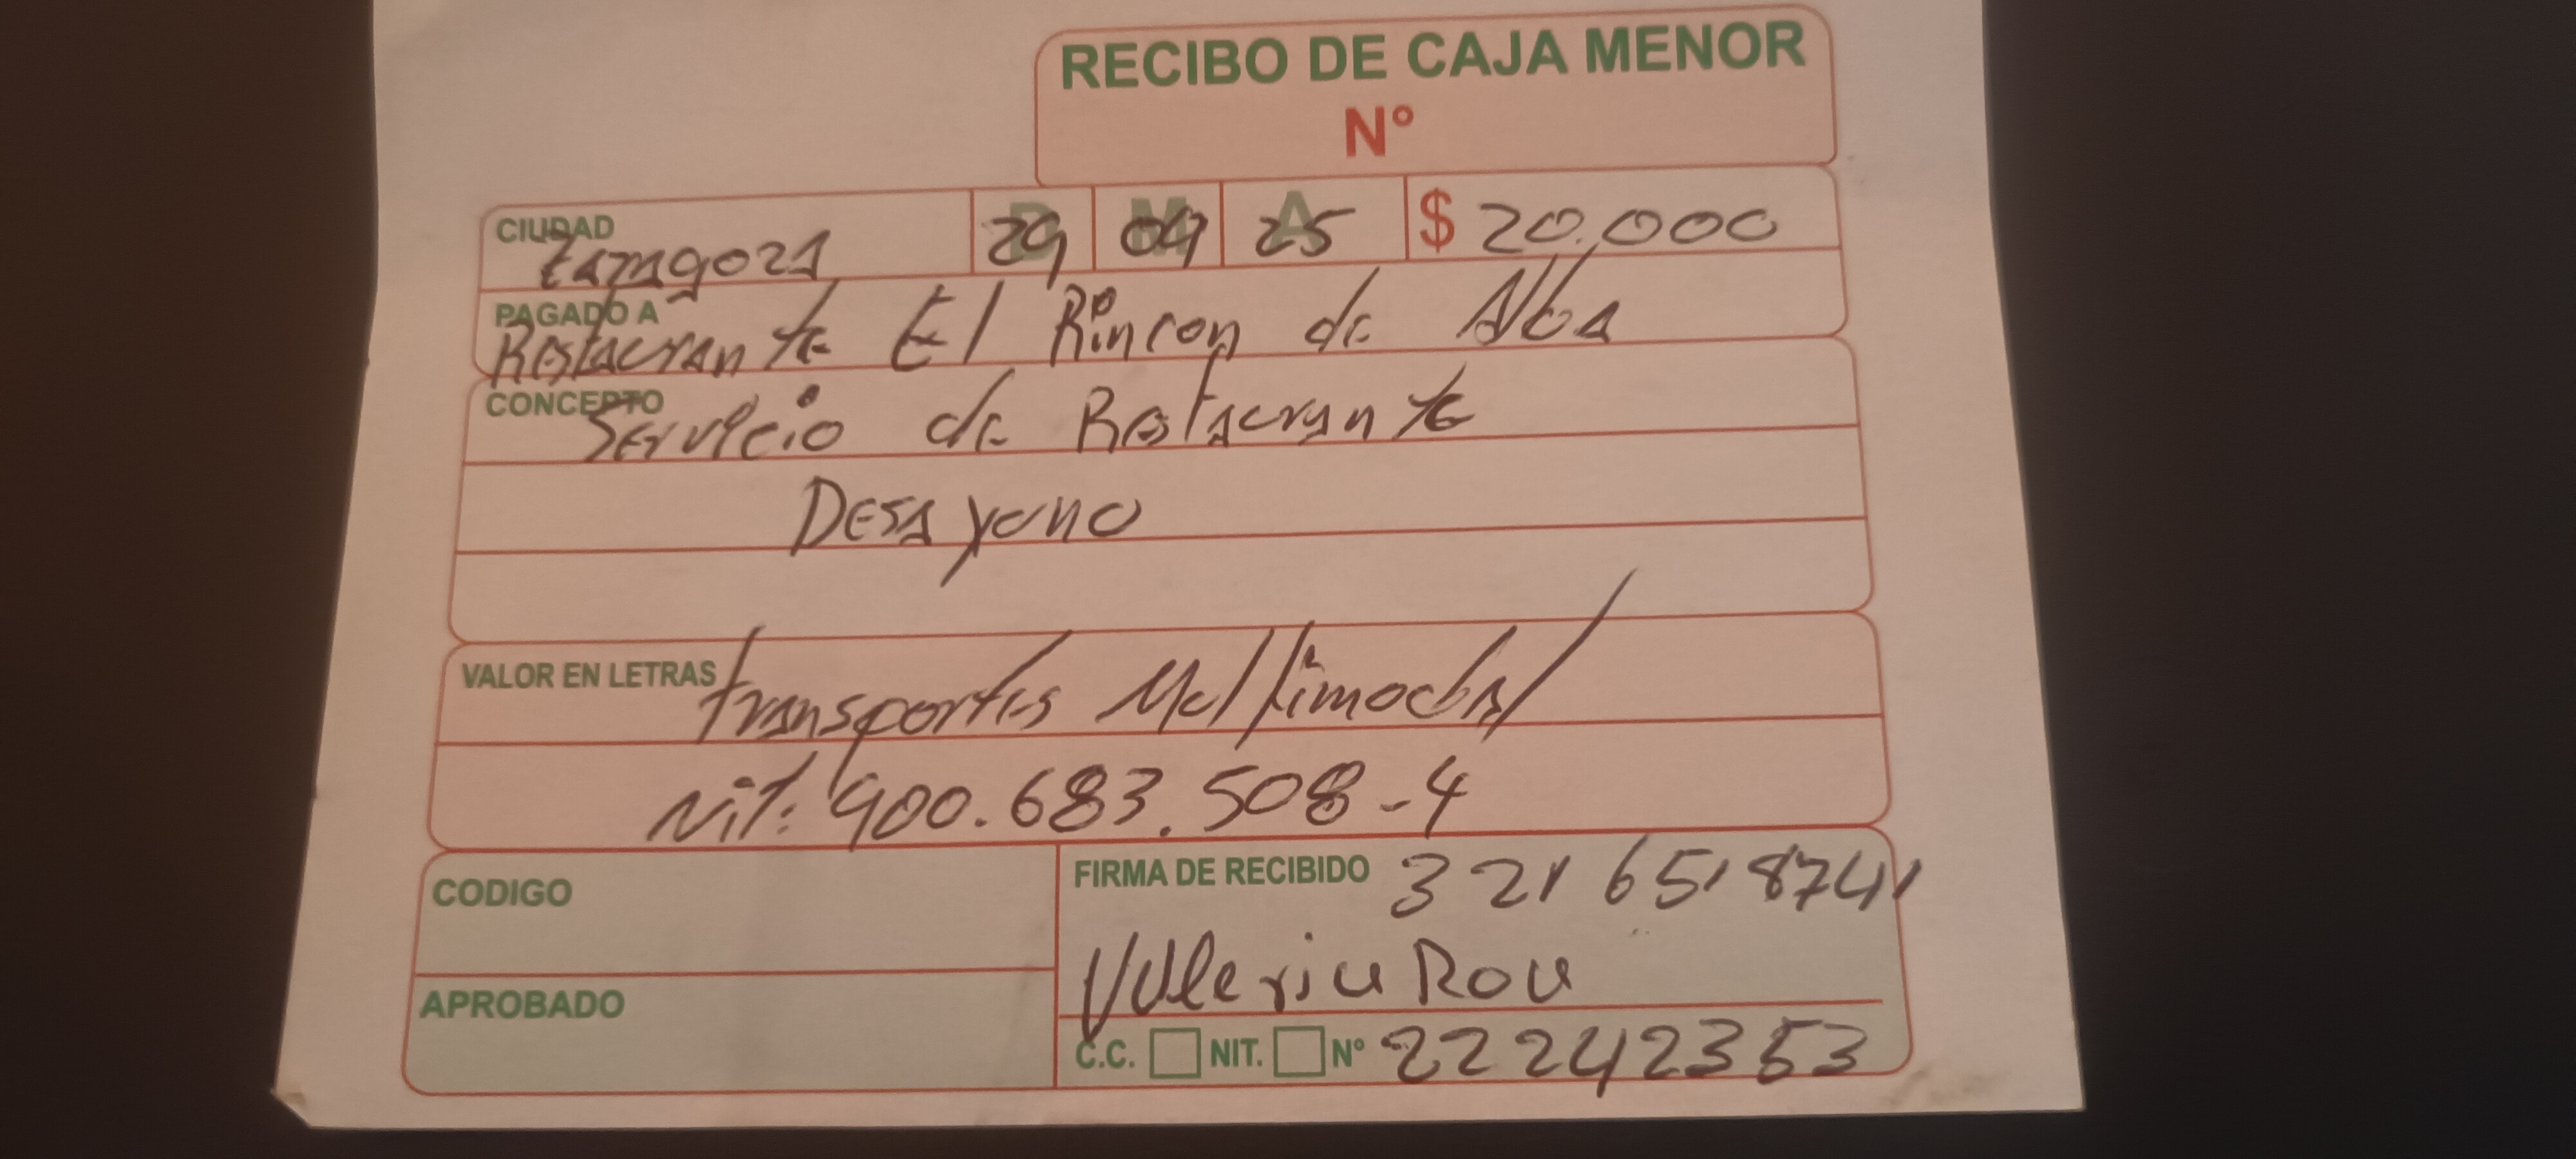 RECIBO DE CAJA MENOR
N°
CIUDAD
Zaragoza
D M A
29 09 25 $ 20.000
PAGADO A
Restaurante El Rincon de Alba
CONCEPTO
Servicio de Restaurante
Desayuno
VALOR EN LETRAS
Transportes Multimodal
Nit: 900.683.508-4
CODIGO
FIRMA DE RECIBIDO 321 6518741
Valeria
APROBADO
C.C. NIT. N° 22242353